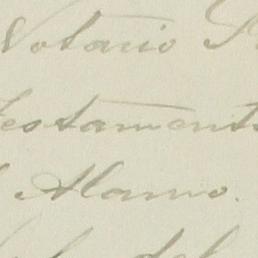 Notario
Testament
Alamo.
del